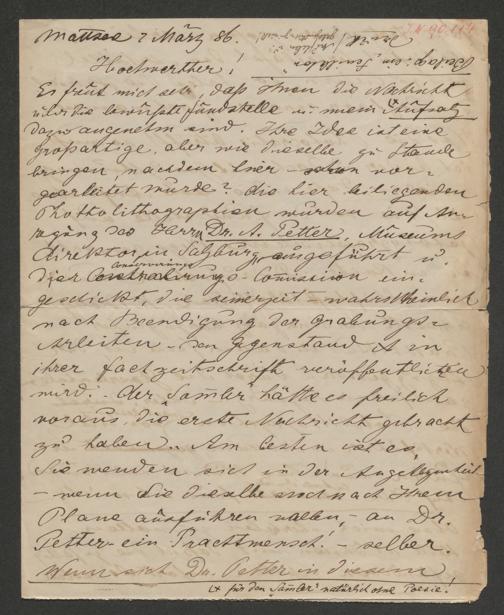 Mattsee 7 März 86.
Beilag: ein Sendblatt
Hochwerther!
Es freut mich sehr, daß Ihnen die Nachricht
über die bewußte Fundstelle u. mein Aufsatz
dazu angenehm sind. Ihre Idee ist eine
großartige, aber wie dieselbe zu Stande
bringen, nachdem hier – schon vor-
gearbeitet wurde? die hier beiliegenden
Photholithographien wurden auf An-
regung des Herrn Dr. A. Petter, Museums
direktor in Salzburg, ausgeführt u.
der Conservirungs-Comission ein-
geschickt, die seinerzeit – wahrscheinlich
nach Beendigung der Grabungs-
Arbeiten – den Gegenstand in
ihrer Fachzeitschrift veröffentlichen
wird. – der "Samler" hätte es freilich
voraus, die erste Nachricht gebracht
zu haben. Am besten ist es,
Sie wenden sich in der Angelegenheit
– wenn Sie dieselbe auch nach Ihrem
Plane ausführen wollen, – an Dr.
Petter – ein Prachtmensch! – selber.
Wenn sich Dr. Petter in diesem
für den "Samler" natürlich ohne Poesie!